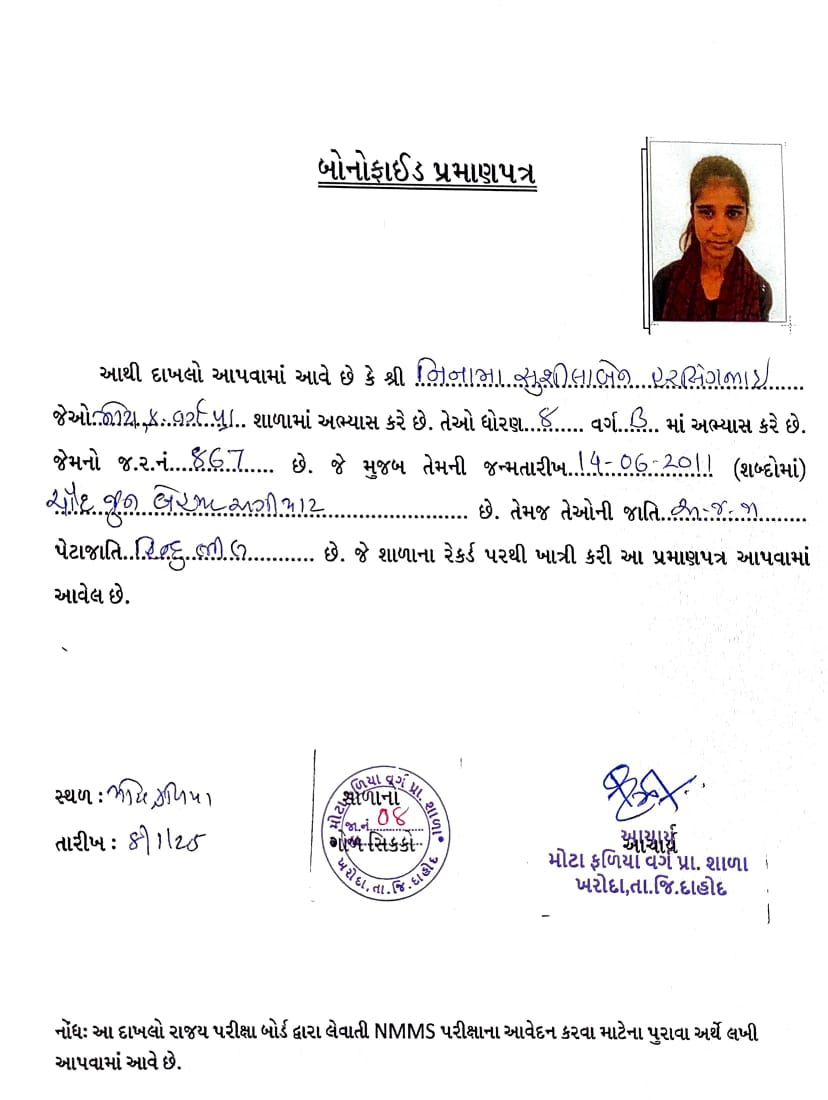 બોનોફાઈડ પ્રમાણપત્ર
આથી દાખલો આપવામાં આવે છે કે શ્રી મિનામા સુશીલાબેન રસિંગભાઇ
જેઓ વર્ગ પ્રા. શાળામાં અભ્યાસ કરે છે. તેઓ ધોરણ 8 વર્ગ B માં અભ્યાસ કરે છે.
જેમનો જ.ર.નં. 867 છે. જે મુજબ તેમની જન્મતારીખ 14-06-2011 (શબ્દોમાં)
ચૌદ જુન બેહજાર અગીયાર છે. તેમજ તેઓની જાતિ અ.જ.જા
પેટાજાતિ હિન્દુ ભીલ છે. જે શાળાના રેકર્ડ પરથી ખાત્રી કરી આ પ્રમાણપત્ર આપવામાં
આવેલ છે.
સ્થળ : મોટા ફળિયા
તારીખ : 8/1/25
મોટા ફળિયા વર્ગ પ્રા. શાળા
શાળાનો
જા.નં. 08
ગોળ સિકકો
ખરોદા, તા.જિ.દાહોદ
આચાર્ય
આચાર્ય
મોટા ફળિયા વર્ગ પ્રા. શાળા
ખરોદા,તા.જિ.દાહોદ
નોંધઃ આ દાખલો રાજય પરીક્ષા બોર્ડ દ્વારા લેવાતી NMMS પરીક્ષાના આવેદન કરવા માટેના પુરાવા અર્થે લખી
આપવામાં આવે છે.